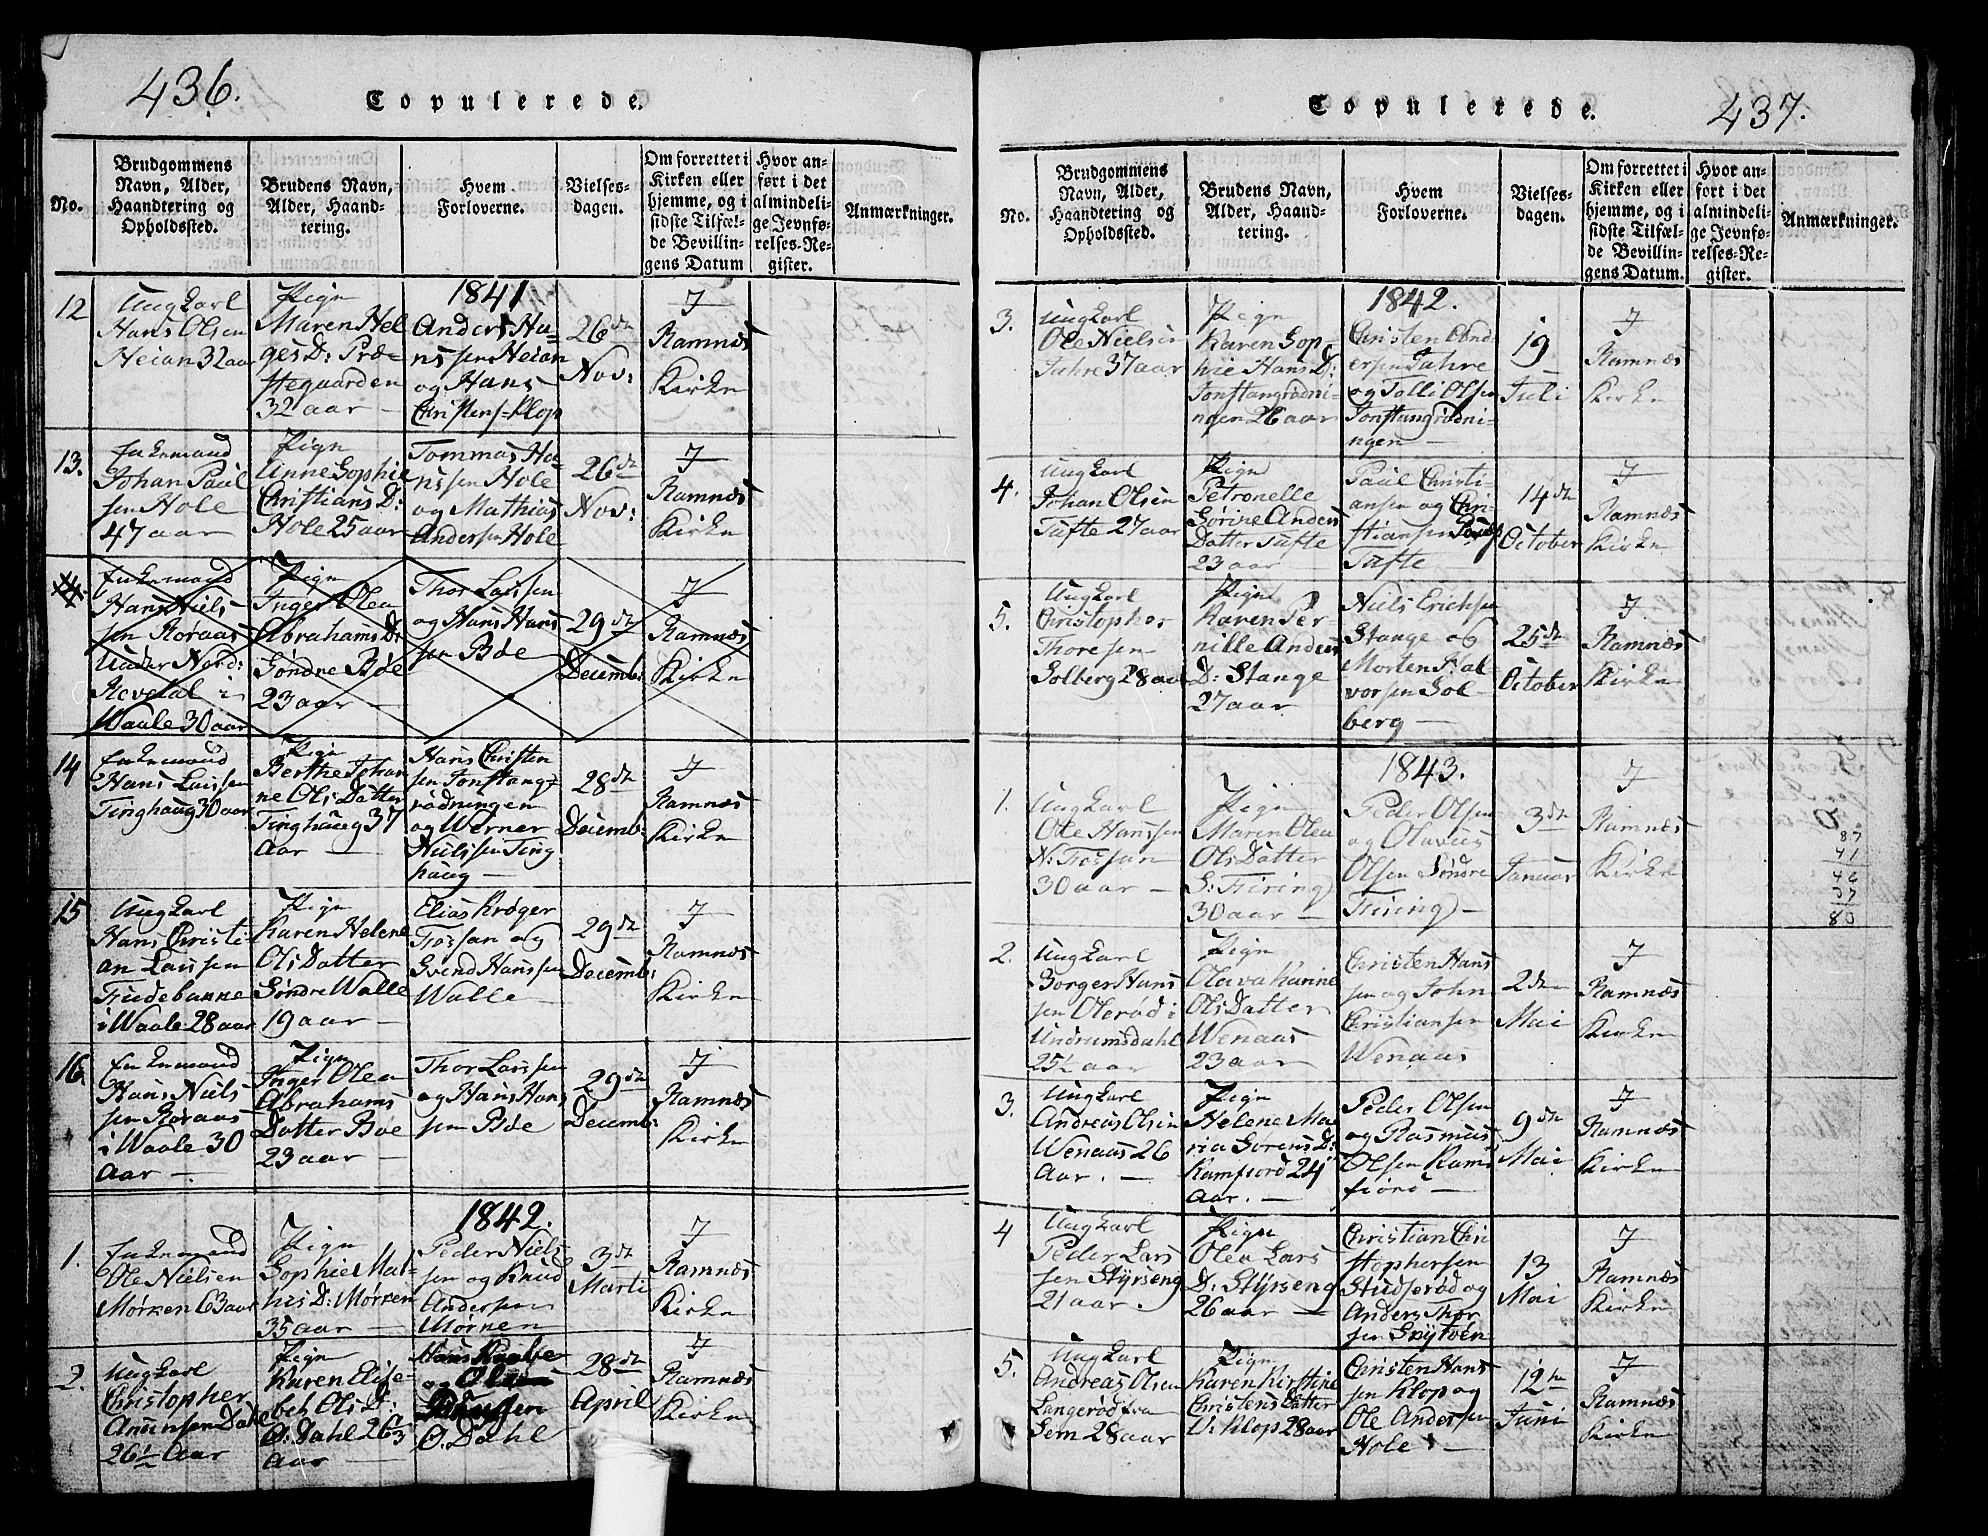 436.
Copulerede.
No.
Brudgommens
Navn, Alder,
Haandtering og
Opholdssted.
Brudens Navn,
Alder, Haand-
tering.
Hvem
Forloverne.
Vielses-
dagen.
Om forrettet i
Kirken eller
hjemme, og i
sidste Tilfæl-
de Bevillin-
gens Datum
Hvor an-
ført i det
almindeli-
ge Jevnfø-
relses-Re-
gister.
Anmærkninger.
1841
12
Ungkarl
Hans Olsen
Heian 32 aar
Pige
Maren Hel
ges D: Præ-
stegaarden
32 aar
Anders Ha-
nssen Heian
og Hans
Christens: Klop
26de
Nov:
I
Ramnæs
Kirke
13.
Enkemand
Johan Paul
sen Hole
47 aar
Pige
Anne Sophie
Christians D:
Hole 25 aar
Tommas Ha-
nssen Hole
og Mathias
Andersen Hole
26de
Nov:
I
Ramnæs
Kirke
14.
Enkemand
Hans Niels-
sen Roraas
under Nord:
Revetal i
Waale 30 aar
Pige
Inger Olea
Abrahams D:
Søndre Bøe
23 aar
Thor Larssen
og Hans Hans
sen Bøe
29de
Decemb:
I
Ramnæs
Kirke
14
Enkemand
Hans Larssen
Tinghaug 30 aar
Pige
Berthe Johan
ne Ols Datter
Tinghaug 37
Aar
Hans Christen
sen Jonstang-
rødningen
og Werner
Nielssen Ting
haug
28de
Decemb:
I
Ramnæs
Kirke
15
Ungkarl
Hans Christi-
an Larssen
Trudebakke
i Waale 28 aar
Pige
Karen Helene
Ols Datter
Søndre Walle
19 aar
Elias Krøger
Fossan og
Svend Hanssen
Walle
29de
Decemb:
I
Ramnæs
Kirke
16
Enkemand
Hans Niels
sen Roraas
i Waale 30
Aar
Pige
Inger Olea
Abrahams
Datter Bøe
23 aar
Thor Larssen
og Hans Hans
sen Bøe
29de
Decemb:
I
Ramnæs
Kirke
1842.
1.
Enkemand
Ole Nielsen
Mørken 63 aar
Pige
Sophie Mat-
his D: Mørken
35 aar
Peder Niels
sen og Knud
Andersen
Mørken
3de
Marti
I
Ramnæs
Kirke
2.
Ungkarl
Christopher
Amunsen Dahl
26½ Aar
Pige
Karen Elise-
beh Ols D:
Ø: Dahl 26¾
Aar
Hans
og
Ø. Dahl
28de
April
I
Ramnæs
Kirke
Copulerede.
437.
No.
Brudgommens
Navn, Alder,
Haandtering og
Opholdssted.
Brudens Navn,
Alder, Haand-
tering.
Hvem
Forloverne.
Vielses-
dagen.
Om forrettet i
Kirken eller
hjemme, og i
sidste Tilfæl-
de Bevillin-
gens Datum.
Hvor an-
ført i det
almindeli-
ge Jevnfø-
relses-Re-
gister.
Anmærkninger.
1842.
3.
Ungkarl
Ole Nielsen
Jahre 37 aar
Pige
Karen Sop-
hie Hans D:
Jonstangrødni-
ngen 26 aar
Christen And
ersen Jahre
og Tolle Olsen
Jonstangrødni-
ngen
19
Juli
I
Ramnæs
Kirke
4.
Ungkarl
Johan Olsen
Tufte 27 aar
Pige
Petronelle
Sørine Anders
Datter Tufte
23 aar
Paul Christi-
ansen og Chri-
stian
Tufte
14de
October
I
Ramnæs
Kirke
5.
Ungkarl
Christopher
Thoresen
Solberg 28 aar
Pige
Karen Per-
nille Anders
D: Stange
27 aar
Niels Erichsen
Stange og
Morten Hal
vorsen Sol-
berg
25de
October
I
Ramnæs
Kirke
1843.
1.
Ungkarl
Ole Hanssen
N: Fossan
30 aar
Pige
Maren Olea
Ols Datter
S: Firing
30 aar
Peder Olsen
og Olavus
Olsen Søndre
Firing
3de
Januar
I
Ramnæs
Kirke
87
41
46
37
80
2.
Ungkarl
Borger Hans
sen Olerød i
Undrumsdahl
25½ aar
Pige
Olava Karine
Ols Datter
Wenaas
23 aar
Christen Hans
sen og John
Christiansen
Wenaas
2den
Mai
I
Ramnæs
Kirke
3.
Ungkarl
Andreas Olsen
Wenaas 26
Aar.
Pige
Helene Ma-
ria Sørens D:
Kamfiord 24
Aar.
Peder Olsen
og Rasmus
Olsen Kam-
fiord
9de
Mai
I
Ramnæs
Kirke
4
Ungkarl
Peder Lars
sen Styrseng
21 aar.
Pige
Olea Lars
D: Styrseng
26 aar
Christian Chri
stophersen
Studserød og
Anders Thor
sen Skytven
13
Mai
I
Ramnæs
Kirke
5.
Ungkarl
Andreas Olsen
Langerød fra
Sem 28 aar
Pige
Karen Kirstine
Christens Datter
V: Klop 28 aar
Christen Hans
sen Klop og
Ole Andersen
Hole
12te
Juni
I
Ramnæs
Kirke